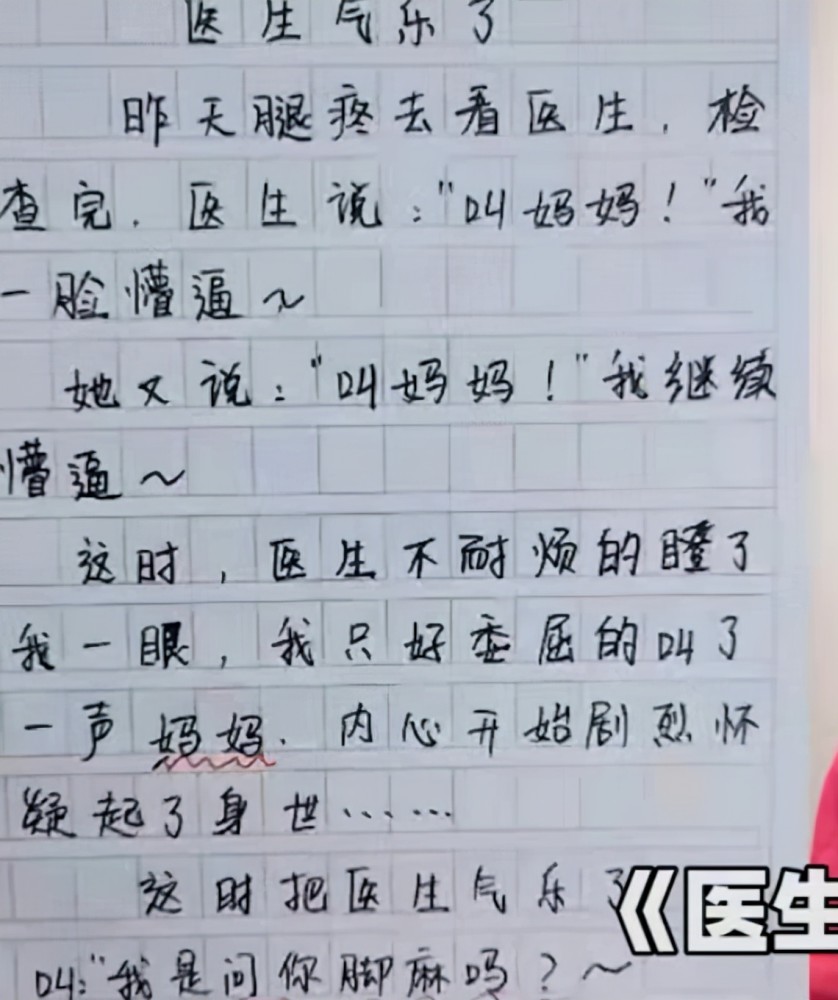 医生气乐了
昨天腿疼去看医生，检
查完，医生说："叫妈妈！"我
一脸懵逼~
她又说："叫妈妈！"我继续
懵逼~
这时，医生不耐烦的瞪了
我一眼，我只好委屈的叫了
一声妈妈．内心开始剧烈怀
疑起了身世……
这时把医生气乐了
叫："我是问你脚麻吗？~
《医生